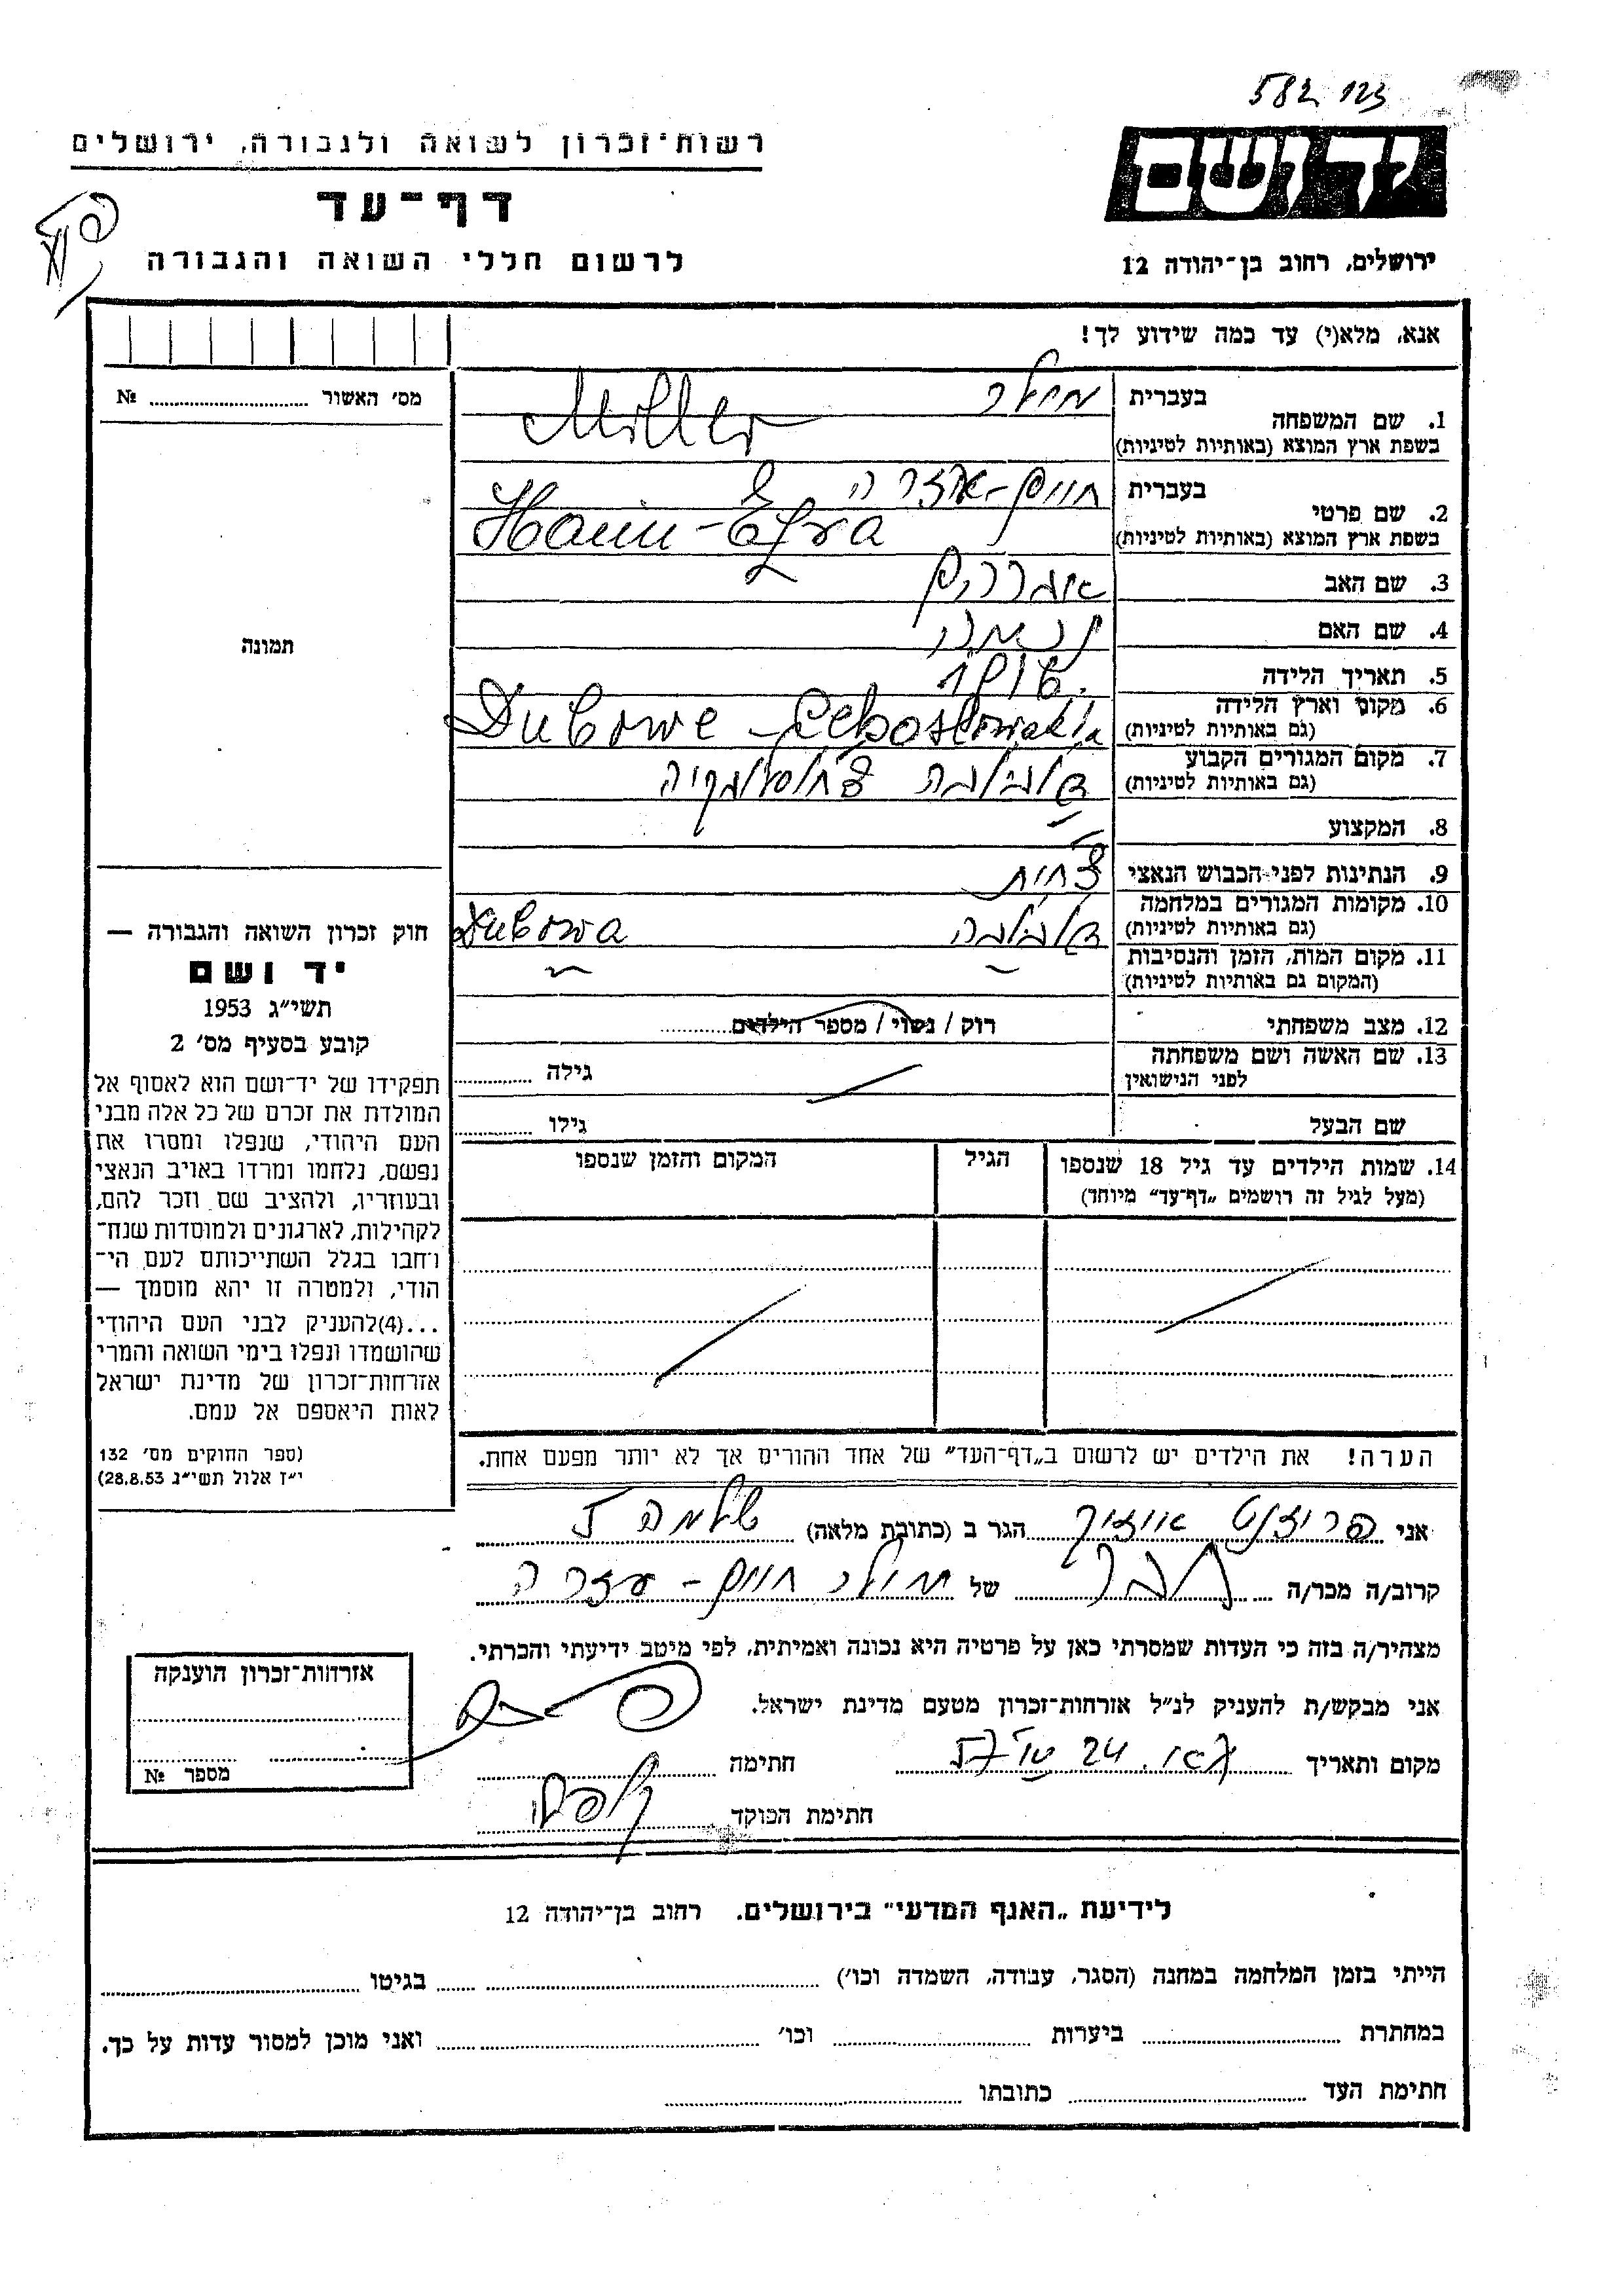 582 123
רשות־זכרון לשואה ולגבורה, ירושלים
יד ושם
דף־עד
לרשום חללי השואה והגבורה
ירושלים, רחוב בן־יהודה 12
אנא, מלא(י) עד כמה שידוע לך!
מס׳ האשור № 
1. שם המשפחה בעברית מילר
בשפת ארץ המוצא (באותיות לטיניות) Miller
2. שם פרטי בעברית חיים-אזרה
בשפת ארץ המוצא (באותיות לטיניות) Haim-Ezra
3. שם האב אברהם
4. שם האם
5. תאריך הלידה
6. מקום וארץ הלידה
(גם באותיות לטיניות) Dubowe -
7. מקום המגורים הקבוע
(גם באותיות לטיניות) דובובה
8. המקצוע
9. הנתינות לפני הכבוש הנאצי צ׳כית
10. מקומות המגורים במלחמה
(גם באותיות לטיניות) דובובה Dubowa
11. מקום המות, הזמן והנסיבות
(המקום גם באותיות לטיניות)
12. מצב משפחתי רוק / נשוי / מספר הילדים
13. שם האשה ושם משפחתה
לפני הנישואין גילה
שם הבעל גילו
תמונה
14. שמות הילדים עד גיל 18 שנספו הגיל המקום והזמן שנספו
(מעל לגיל זה רושמים „דף־עד״ מיוחד)
הערה! את הילדים יש לרשום ב„דף־העד״ של אחד ההורים אך לא יותר מפעם אחת.
חוק זכרון השואה והגבורה —
יד ושם
תשי״ג 1953
קובע בסעיף מס׳ 2
תפקידו של יד־ושם הוא לאסוף אל
המולדת את זכרם של כל אלה מבני
העם היהודי, שנפלו ומסרו את
נפשם, נלחמו ומרדו באויב הנאצי
ובעוזריו, ולהציב שם וזכר להם,
לקהילות, לארגונים ולמוסדות שנח־
רבו בגלל השתייכותם לעם הי־
הודי, ולמטרה זו יהא מוסמך —
...(4)להעניק לבני העם היהודי
שהושמדו ונפלו בימי השואה והמרי
אזרחות־זכרון של מדינת ישראל
לאות היאספם אל עמם.
(ספר החוקים מס׳ 132
י״ז אלול תשי״ג 28.8.53)
אני הגר ב (כתובת מלאה)
קרוב/ה מכר/ה חבר של מילר חיים-עזרה
מצהיר/ה בזה כי העדות שמסרתי כאן על פרטיה היא נכונה ואמיתית, לפי מיטב ידיעתי והכרתי.
אני מבקש/ת להעניק לנ״ל אזרחות־זכרון מטעם מדינת ישראל.
מקום ותאריך 24 חתימה
חתימת הפוקד
אזרחות־זכרון הוענקה
מספר №
לידיעת „האגף המדעי״ בירושלים. רחוב בן־יהודה 12
הייתי בזמן המלחמה במחנה (הסגר, עבודה, השמדה וכו׳) בגיטו
במחתרת ביערות וכו׳ ואני מוכן למסור עדות על כך.
חתימת העד כתובתו